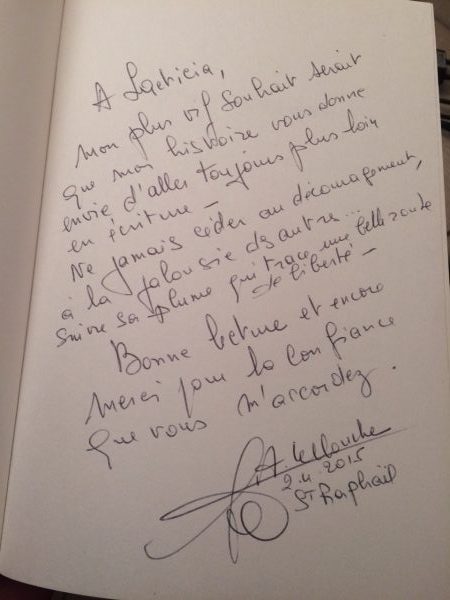 A Laeticia,
Mon plus vif souhait serait
que mon histoire vous donne
envie d'aller toujours plus loin
en écriture -
Ne jamais céder au découragement,
à la jalousie des autres...
Suivre sa plume qui trace une belle route
de liberté -
Bonne lecture et encore
Merci pour la confiance
que vous m'accordez.
2.11.2015
St Raphaël